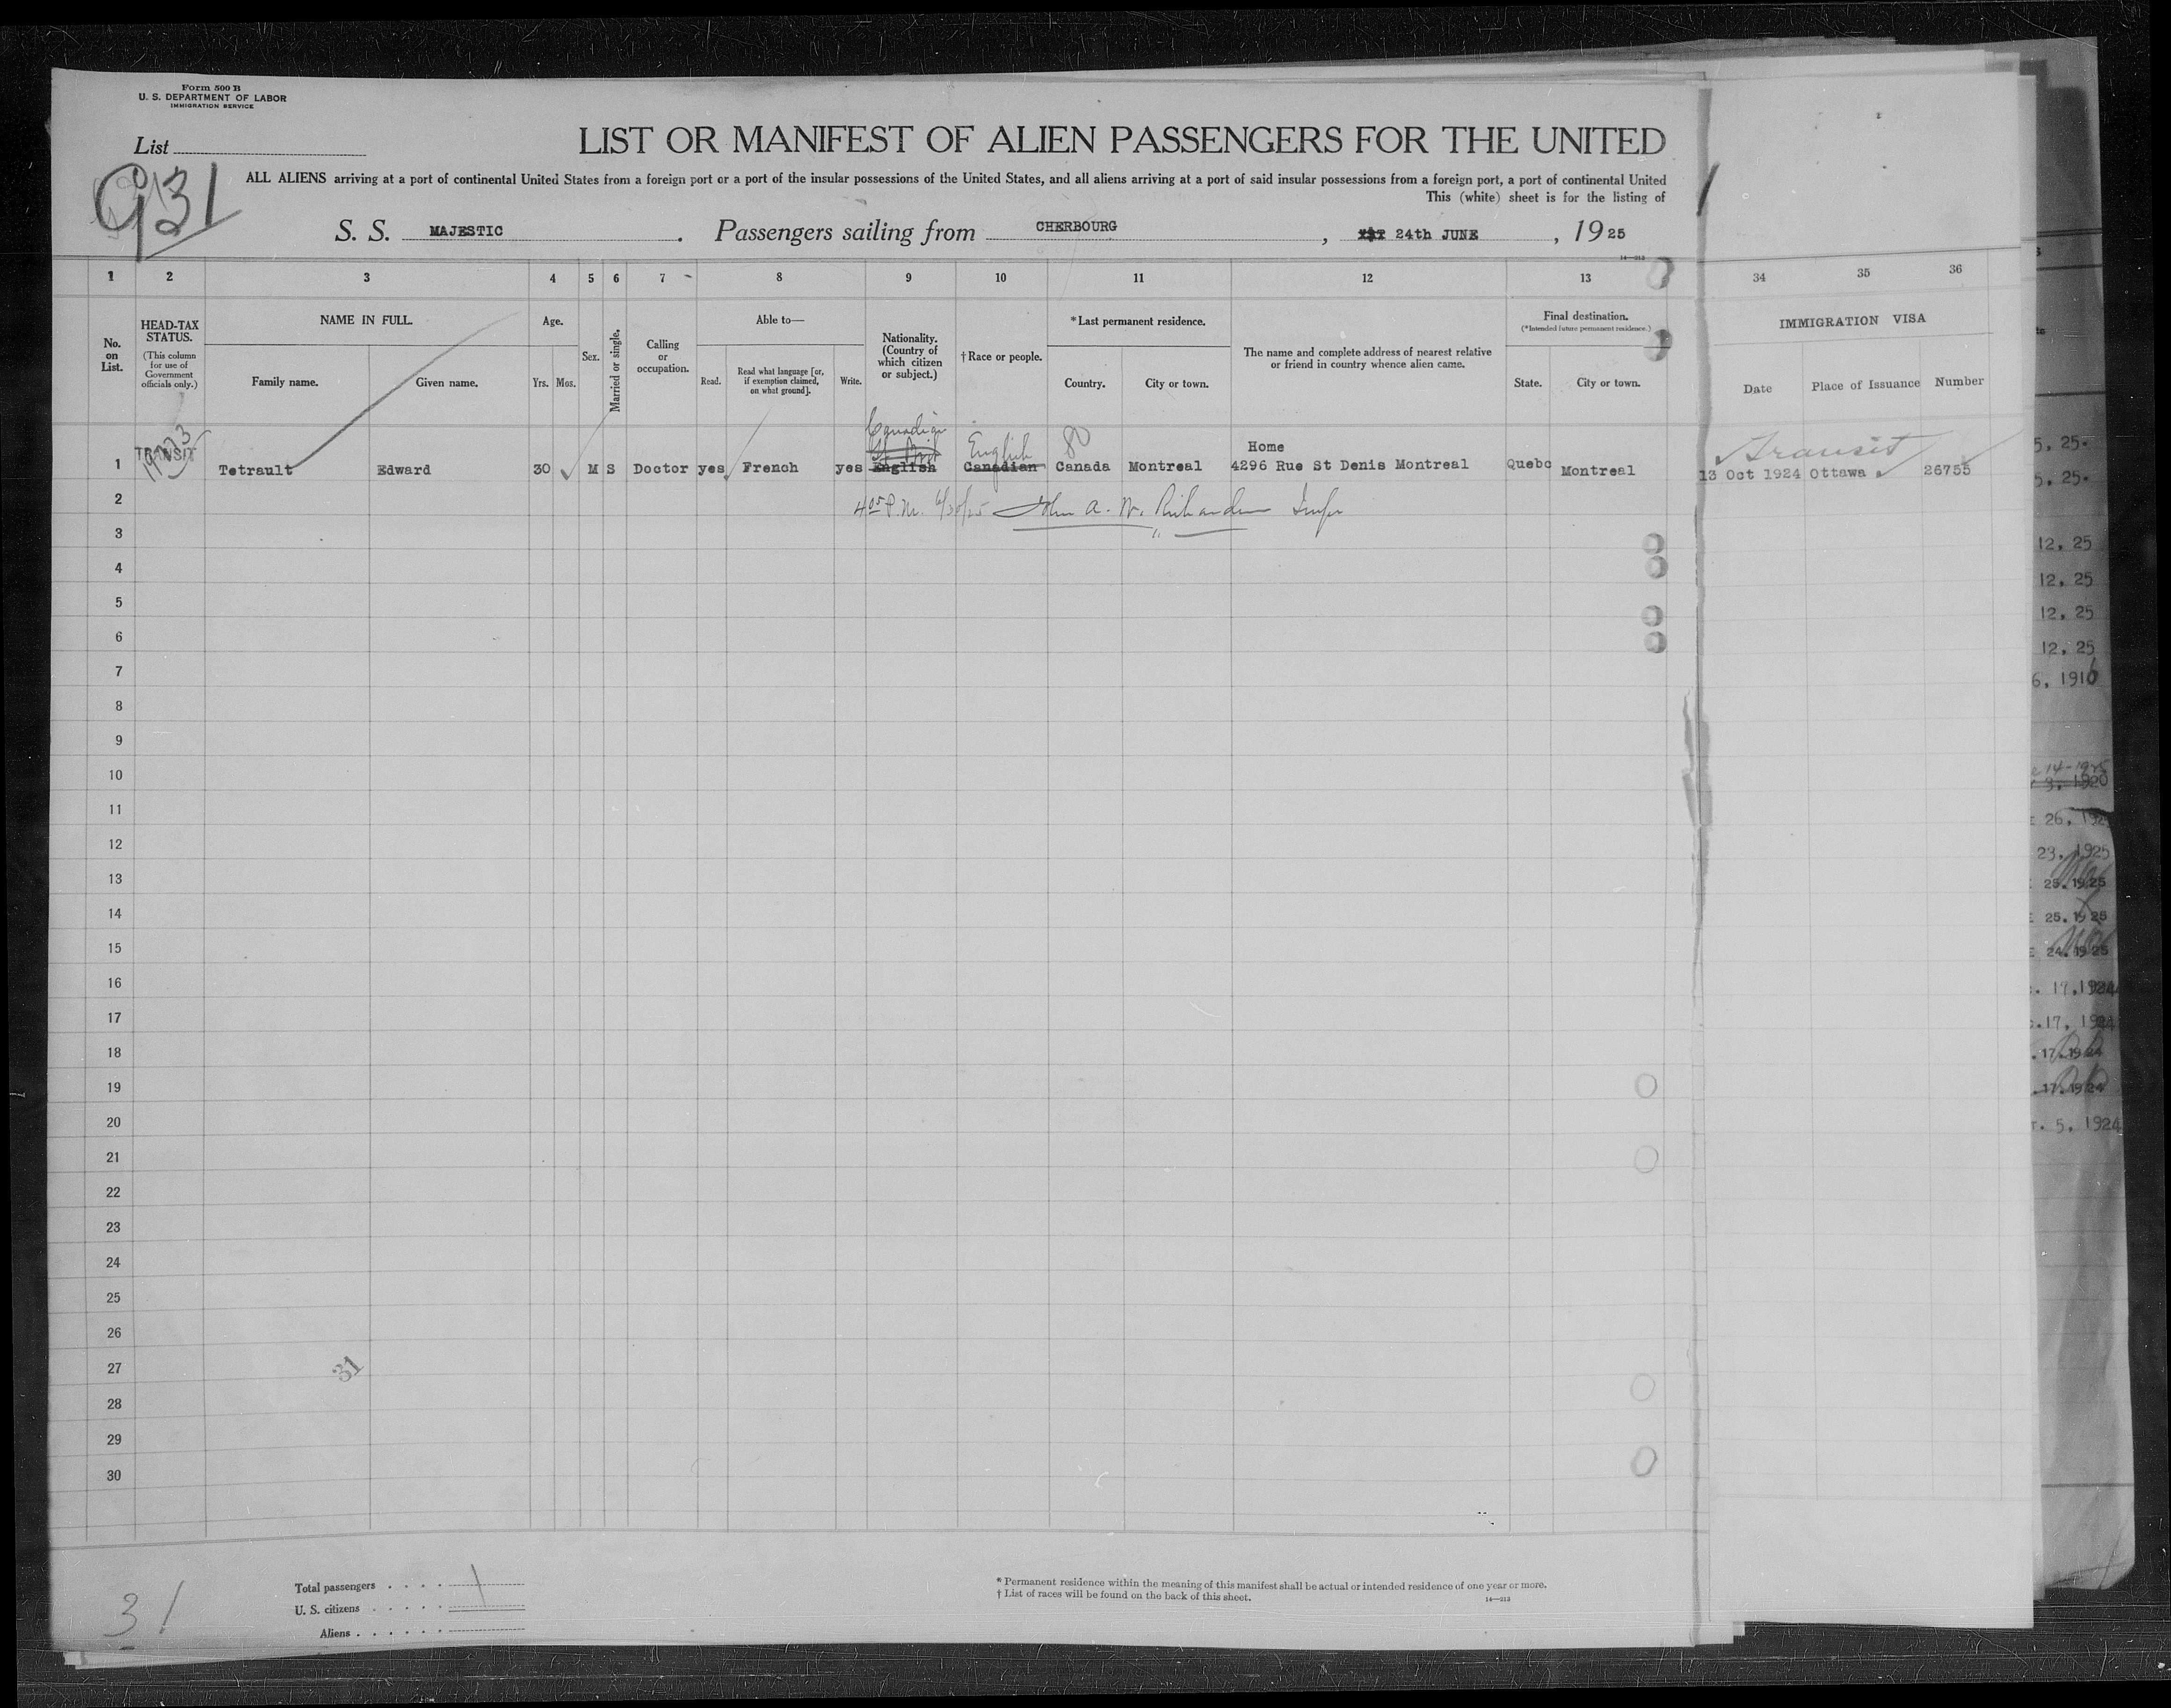 Form 500 B
U. S. DEPARTMENT OF LABOR
IMMIGRATION SERVICE
List
G31
LIST OR MANIFEST OF ALIEN PASSENGERS FOR THE UNITED
ALL ALIENS arriving at a port of continental United States from a foreign port or a port of the insular possessions of the United States, and all aliens arriving at a port of said insular possessions from a foreign port, a port of continental United
This (white) sheet is for the listing of
S. S. MAJESTIC. Passengers sailing from CHERBOURG, 24th JUNE, 1925
14—213
1 2 3 4 5 6 7 8 9 10 11 12 13 34 35 36
No. on List.
HEAD-TAX STATUS.
(This column for use of Government officials only.)
NAME IN FULL.
Family name. Given name.
Age.
Yrs. Mos.
Sex.
Married or single.
Calling or occupation.
Able to—
Read. Read what language [or, if exemption claimed, on what ground]. Write.
Nationality. (Country of which citizen or subject.)
†Race or people.
*Last permanent residence.
Country. City or town.
The name and complete address of nearest relative or friend in country whence alien came.
Final destination.
(*Intended future permanent residence.)
State. City or town.
IMMIGRATION VISA
Date Place of Issuance Number
Canadian
TRANSIT English Home Transit
1 Tetrault Edward 30 M S Doctor yes French yes English Canadian Canada Montreal 4296 Rue St Denis Montreal Quebc Montreal 13 Oct 1924 Ottawa 26755
2 4 05 P.M. 6/30/25 John A. W. Richardson Insp
3
4
5
6
7
8
9
10
11
12
13
14
15
16
17
18
19
20
21
22
23
24
25
26
27
28
29
30
31
5, 25.
5, 25.
12, 25
12, 25
12, 25
12, 25
6, 1916
14-1925
3. 1920
26, 192
23, 1925
25. 1925
25. 1925
24. 1925
17, 1924
17, 1924
17. 1924
17. 1924
5, 1924
31
Total passengers . . . . 1
U. S. citizens . . . . .
Aliens . . . . . .
* Permanent residence within the meaning of this manifest shall be actual or intended residence of one year or more.
† List of races will be found on the back of this sheet.
14—213